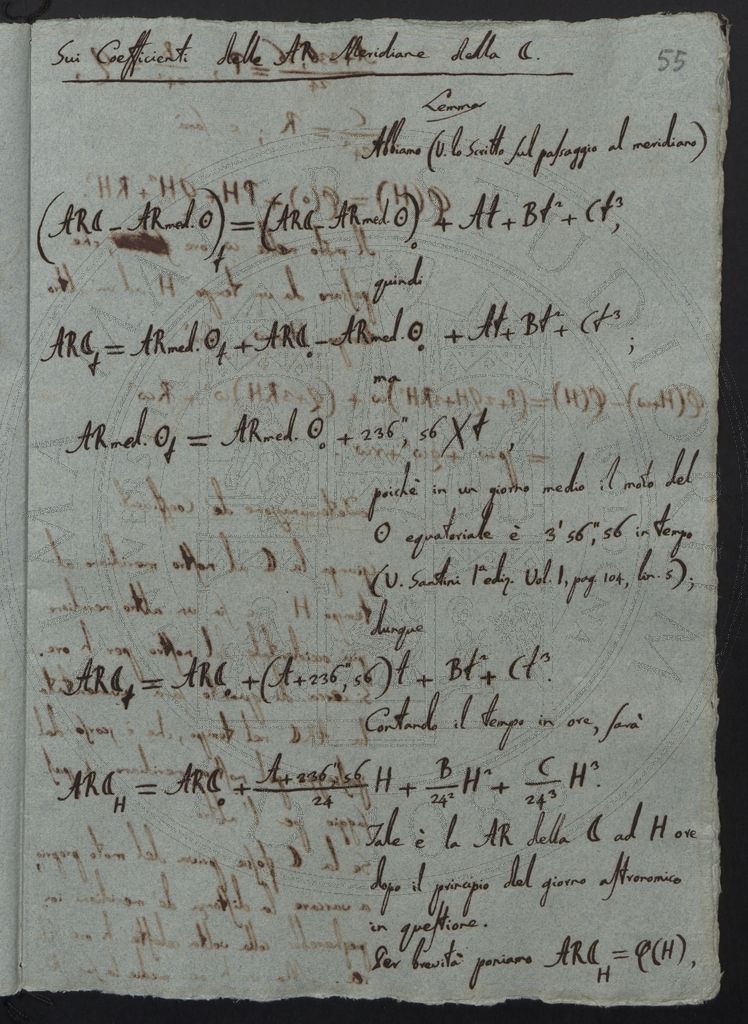 Sui Coefficienti delle AR Meridiane della ☾.
55
Lemma
Abbiamo (V. lo Scritto sul paſsaggio al meridiano)
(AR☾ – ARmed.☉)t = (AR☾ – ARmed.☉)o + At + Bt² + Ct³,
quindi
AR☾t = ARmed.☉t + AR☾o – ARmed.☉o + At + Bt² + Ct³;
ma
ARmed.☉t = ARmed.☉o + 236",56 × t,
poichè in un giorno medio il moto del
☉ equatoriale è 3'56",56 in tempo
(V. Santini 1ª ediz. Vol. 1, pag. 104, lin. 5);
dunque
AR☾t = AR☾o + (A + 236",56)t + Bt² + Ct³.
Contando il tempo in ore, sarà
AR☾H = AR☾o + (A + 236",56)/24 H + B/24² H² + C/24³ H³.
Tale è la AR della ☾ ad H ore
dopo il principio del giorno aſtronomico
in queſtione.
Per brevità poniamo AR☾H = φ(H),